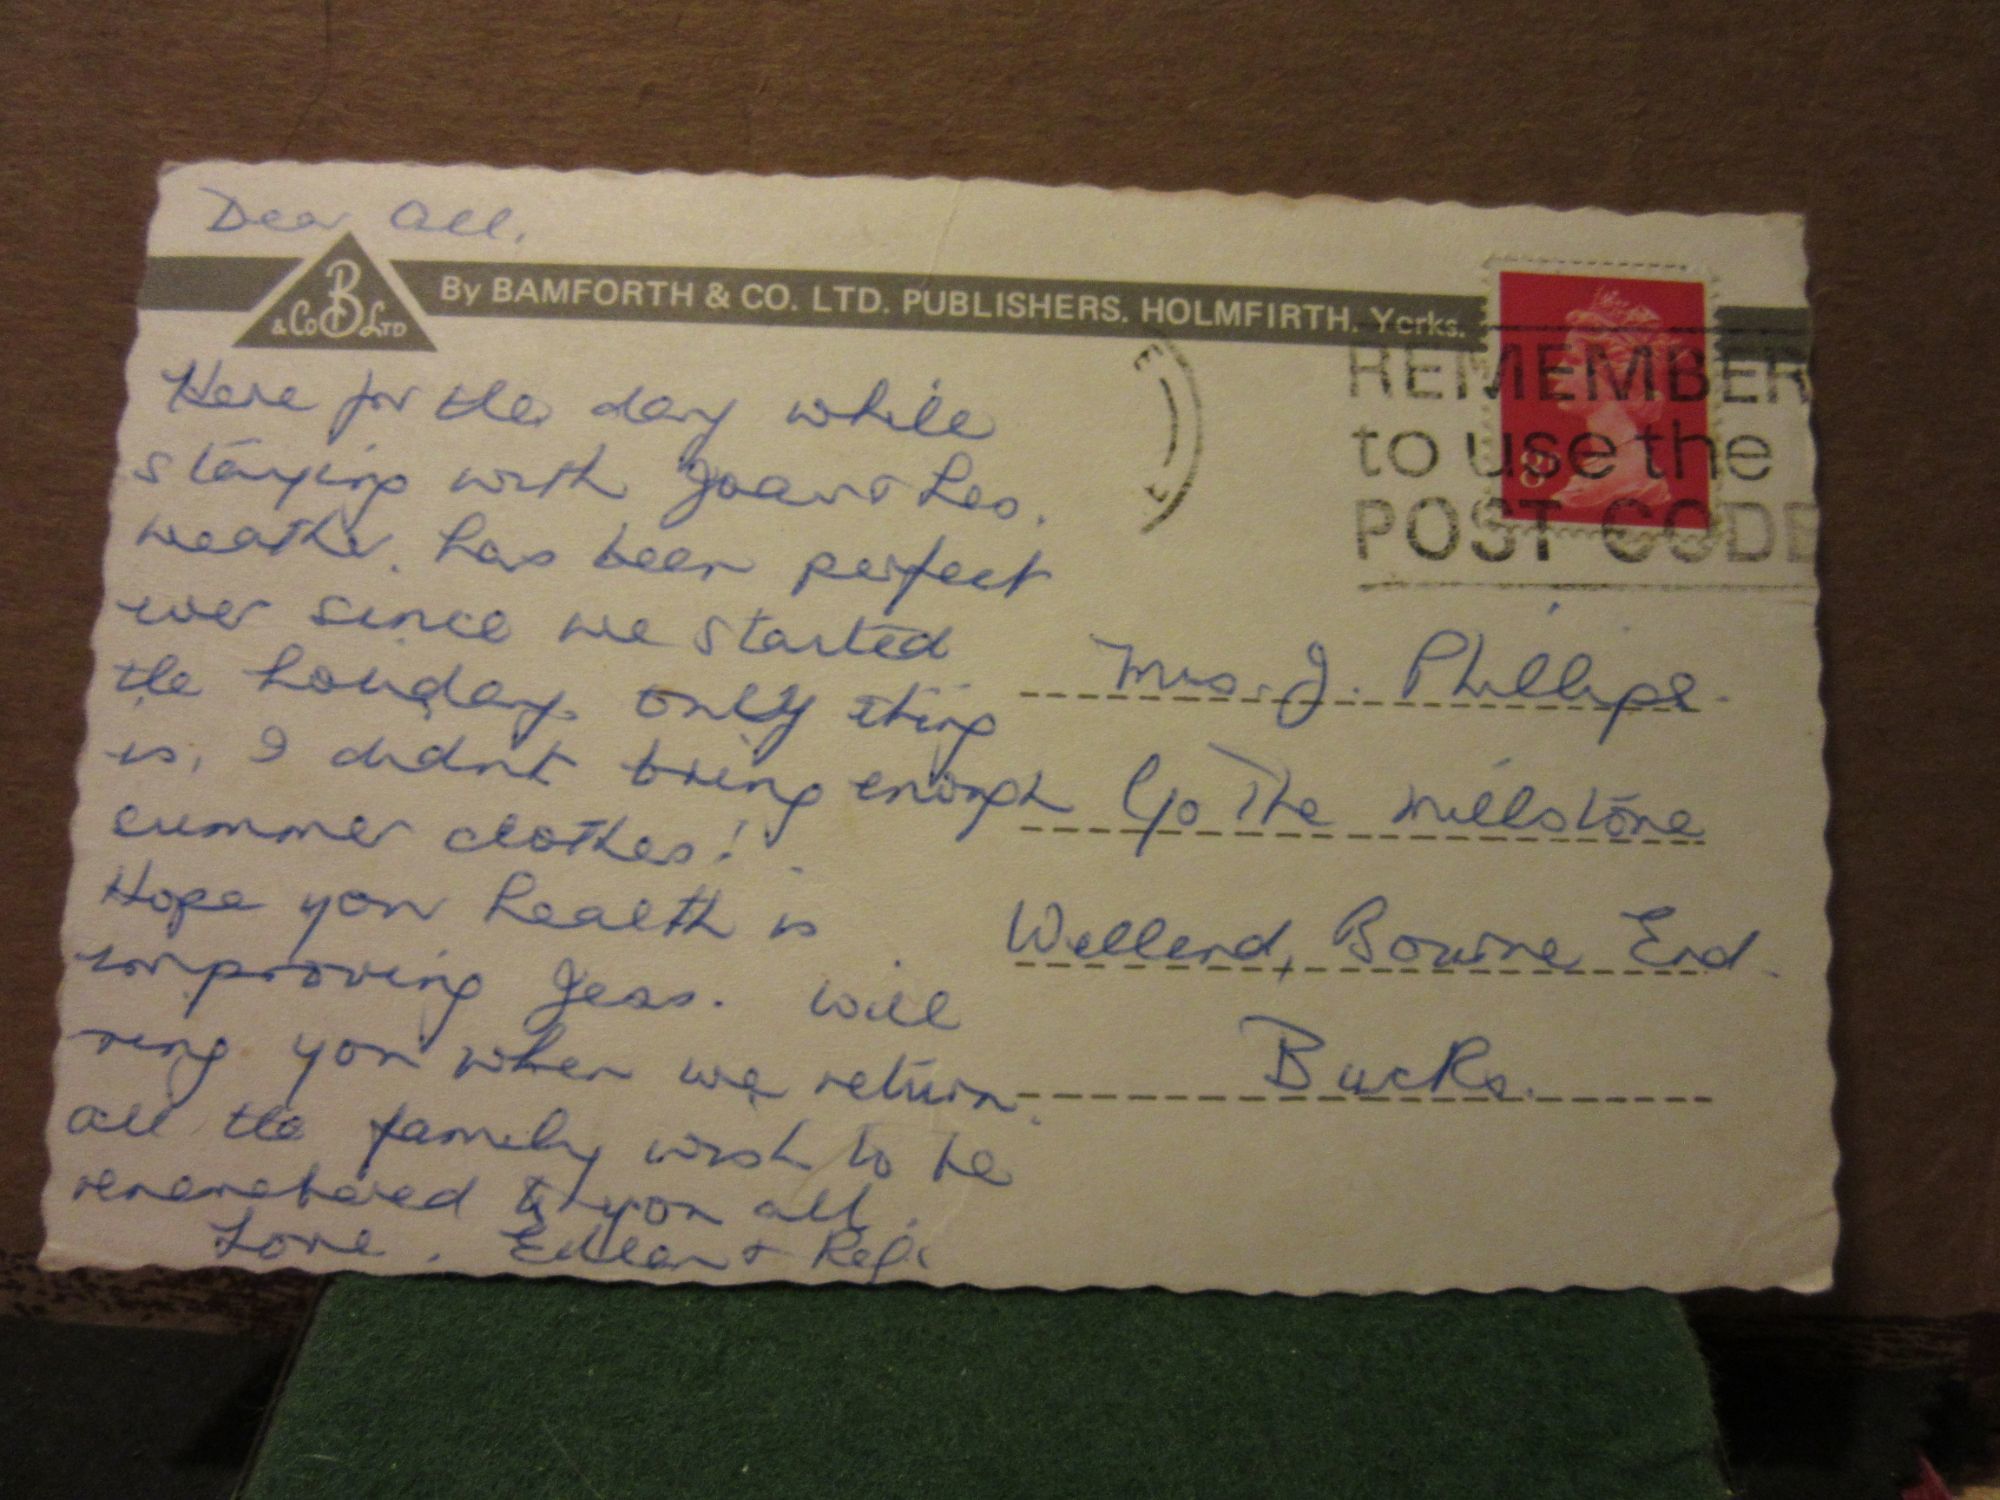 Dear all,
B
& Co Ltd
By BAMFORTH & CO. LTD. PUBLISHERS. HOLMFIRTH. Yorks.
Here for the day while
staying with Joan & Les.
weather. has been perfect
ever since we started
the holiday, only thing
is, I didn't bring enough
summer clothes!
Hope your health is
improving Jess. Will
ring you when we return.
all the family wish to be
remembered to you all.
Love. Eileen & Reg.
REMEMBER
to use the
POST CODE
8P
Mrs. J. Phillips.
c/o The Millstone
Wellend, Bourne End.
Bucks.